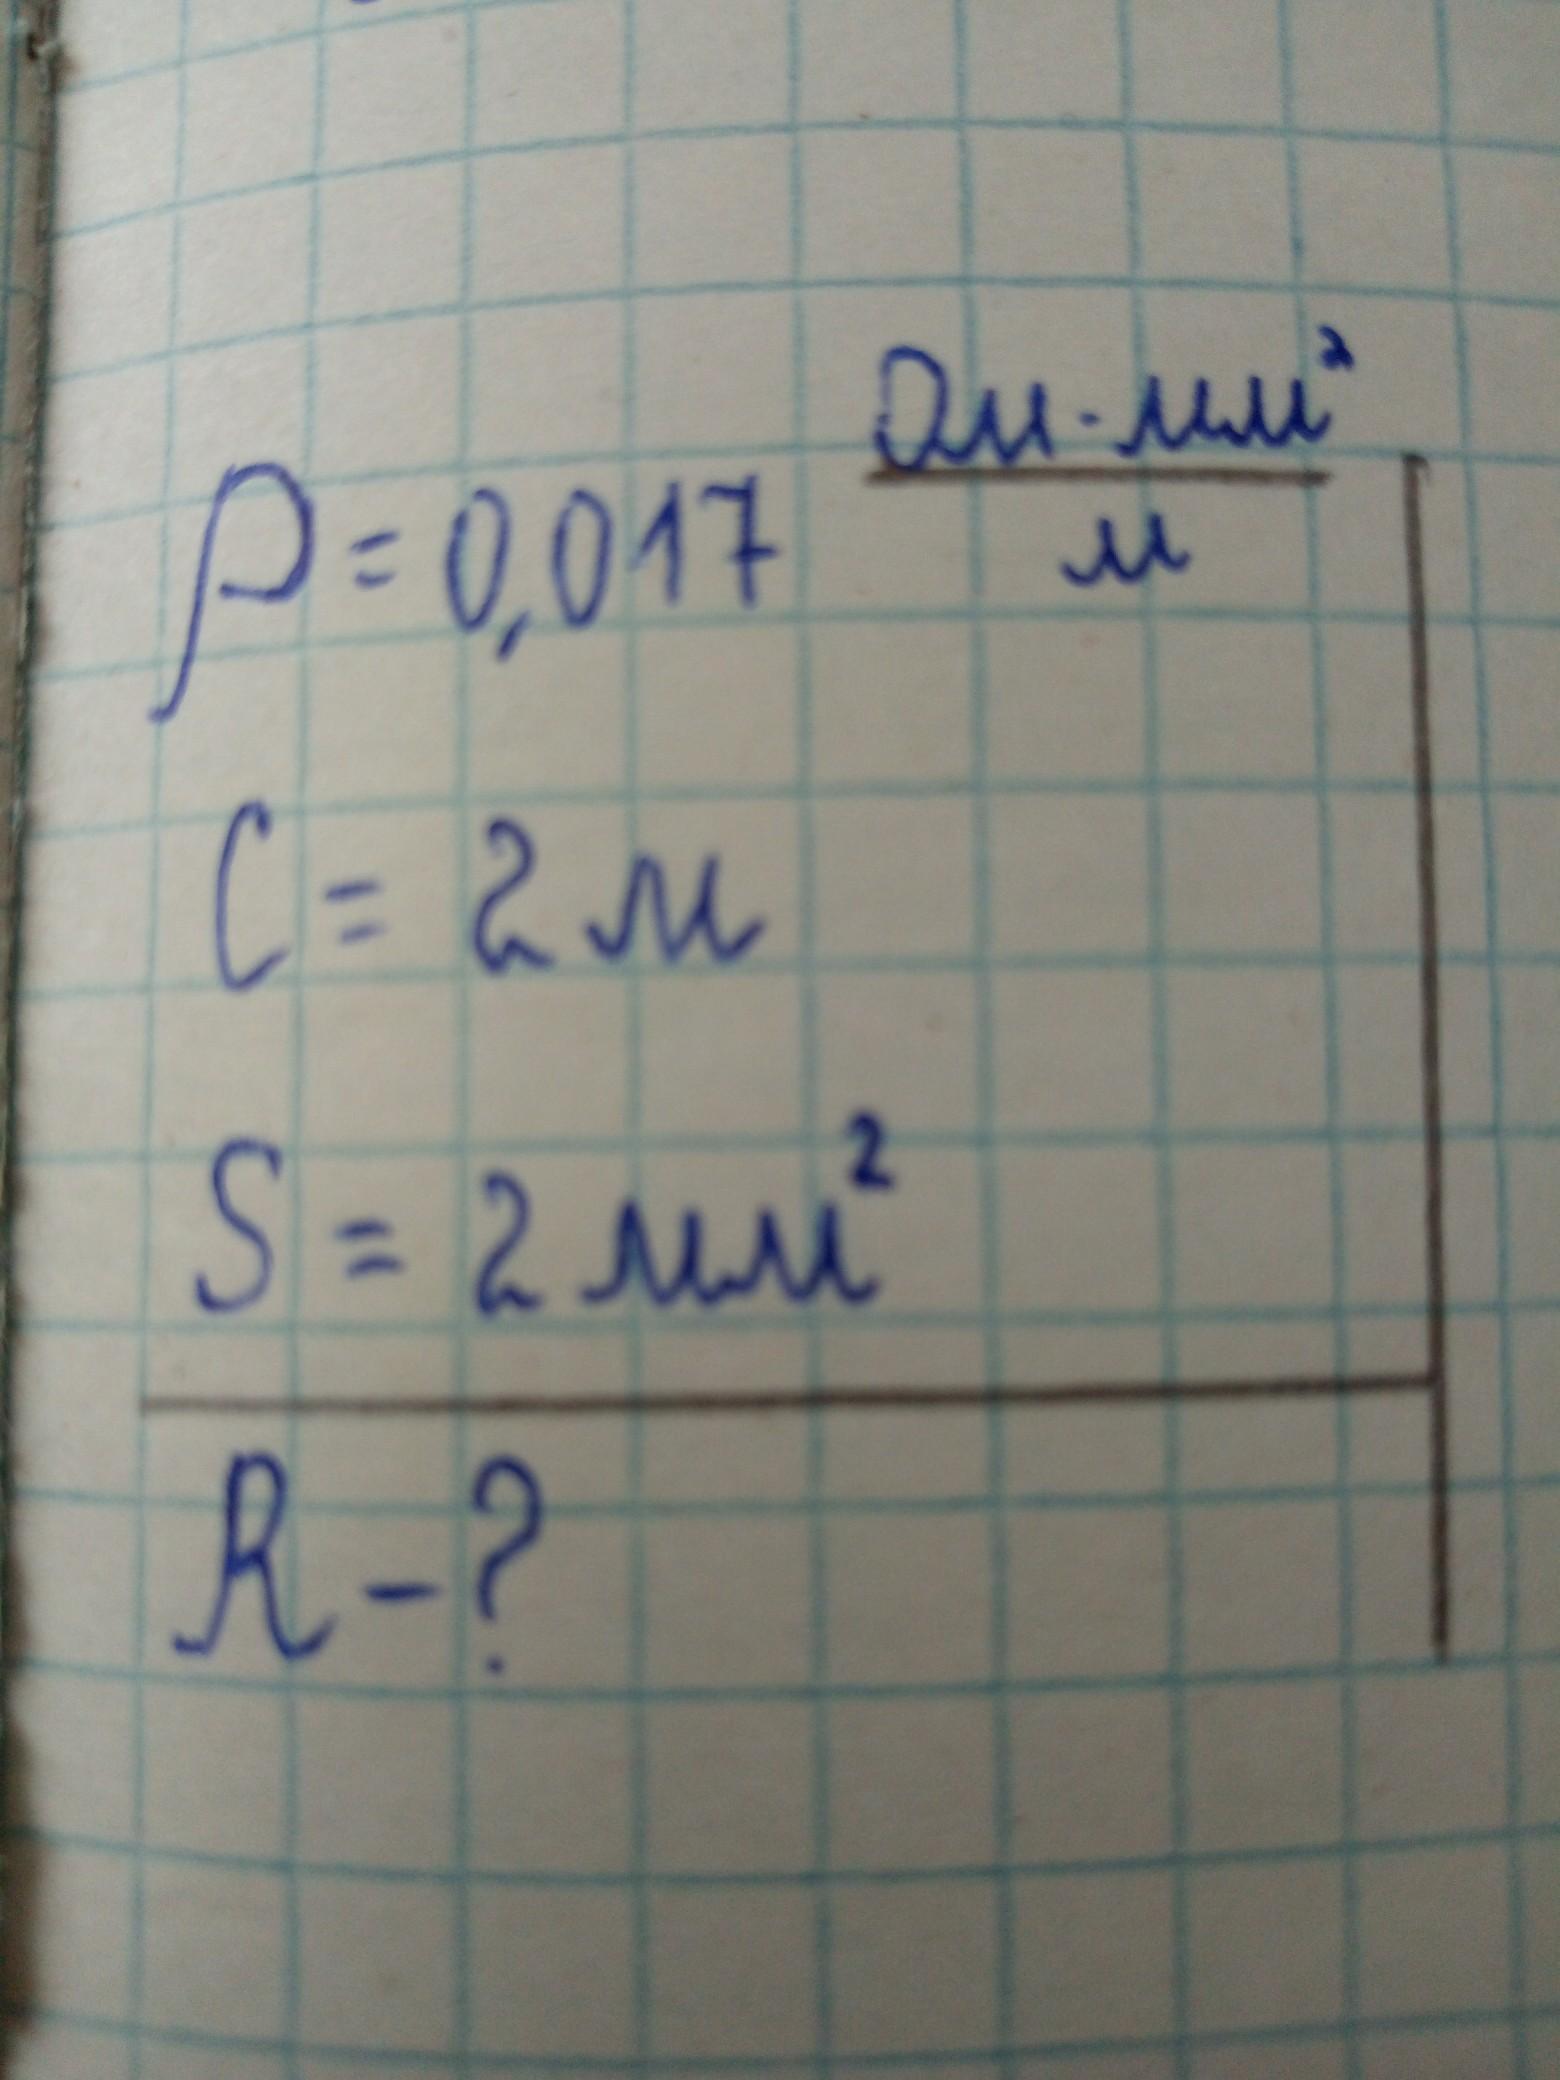 ρ = 0,017 Ом·мм²/м
l = 2 м
S = 2 мм²
R - ?